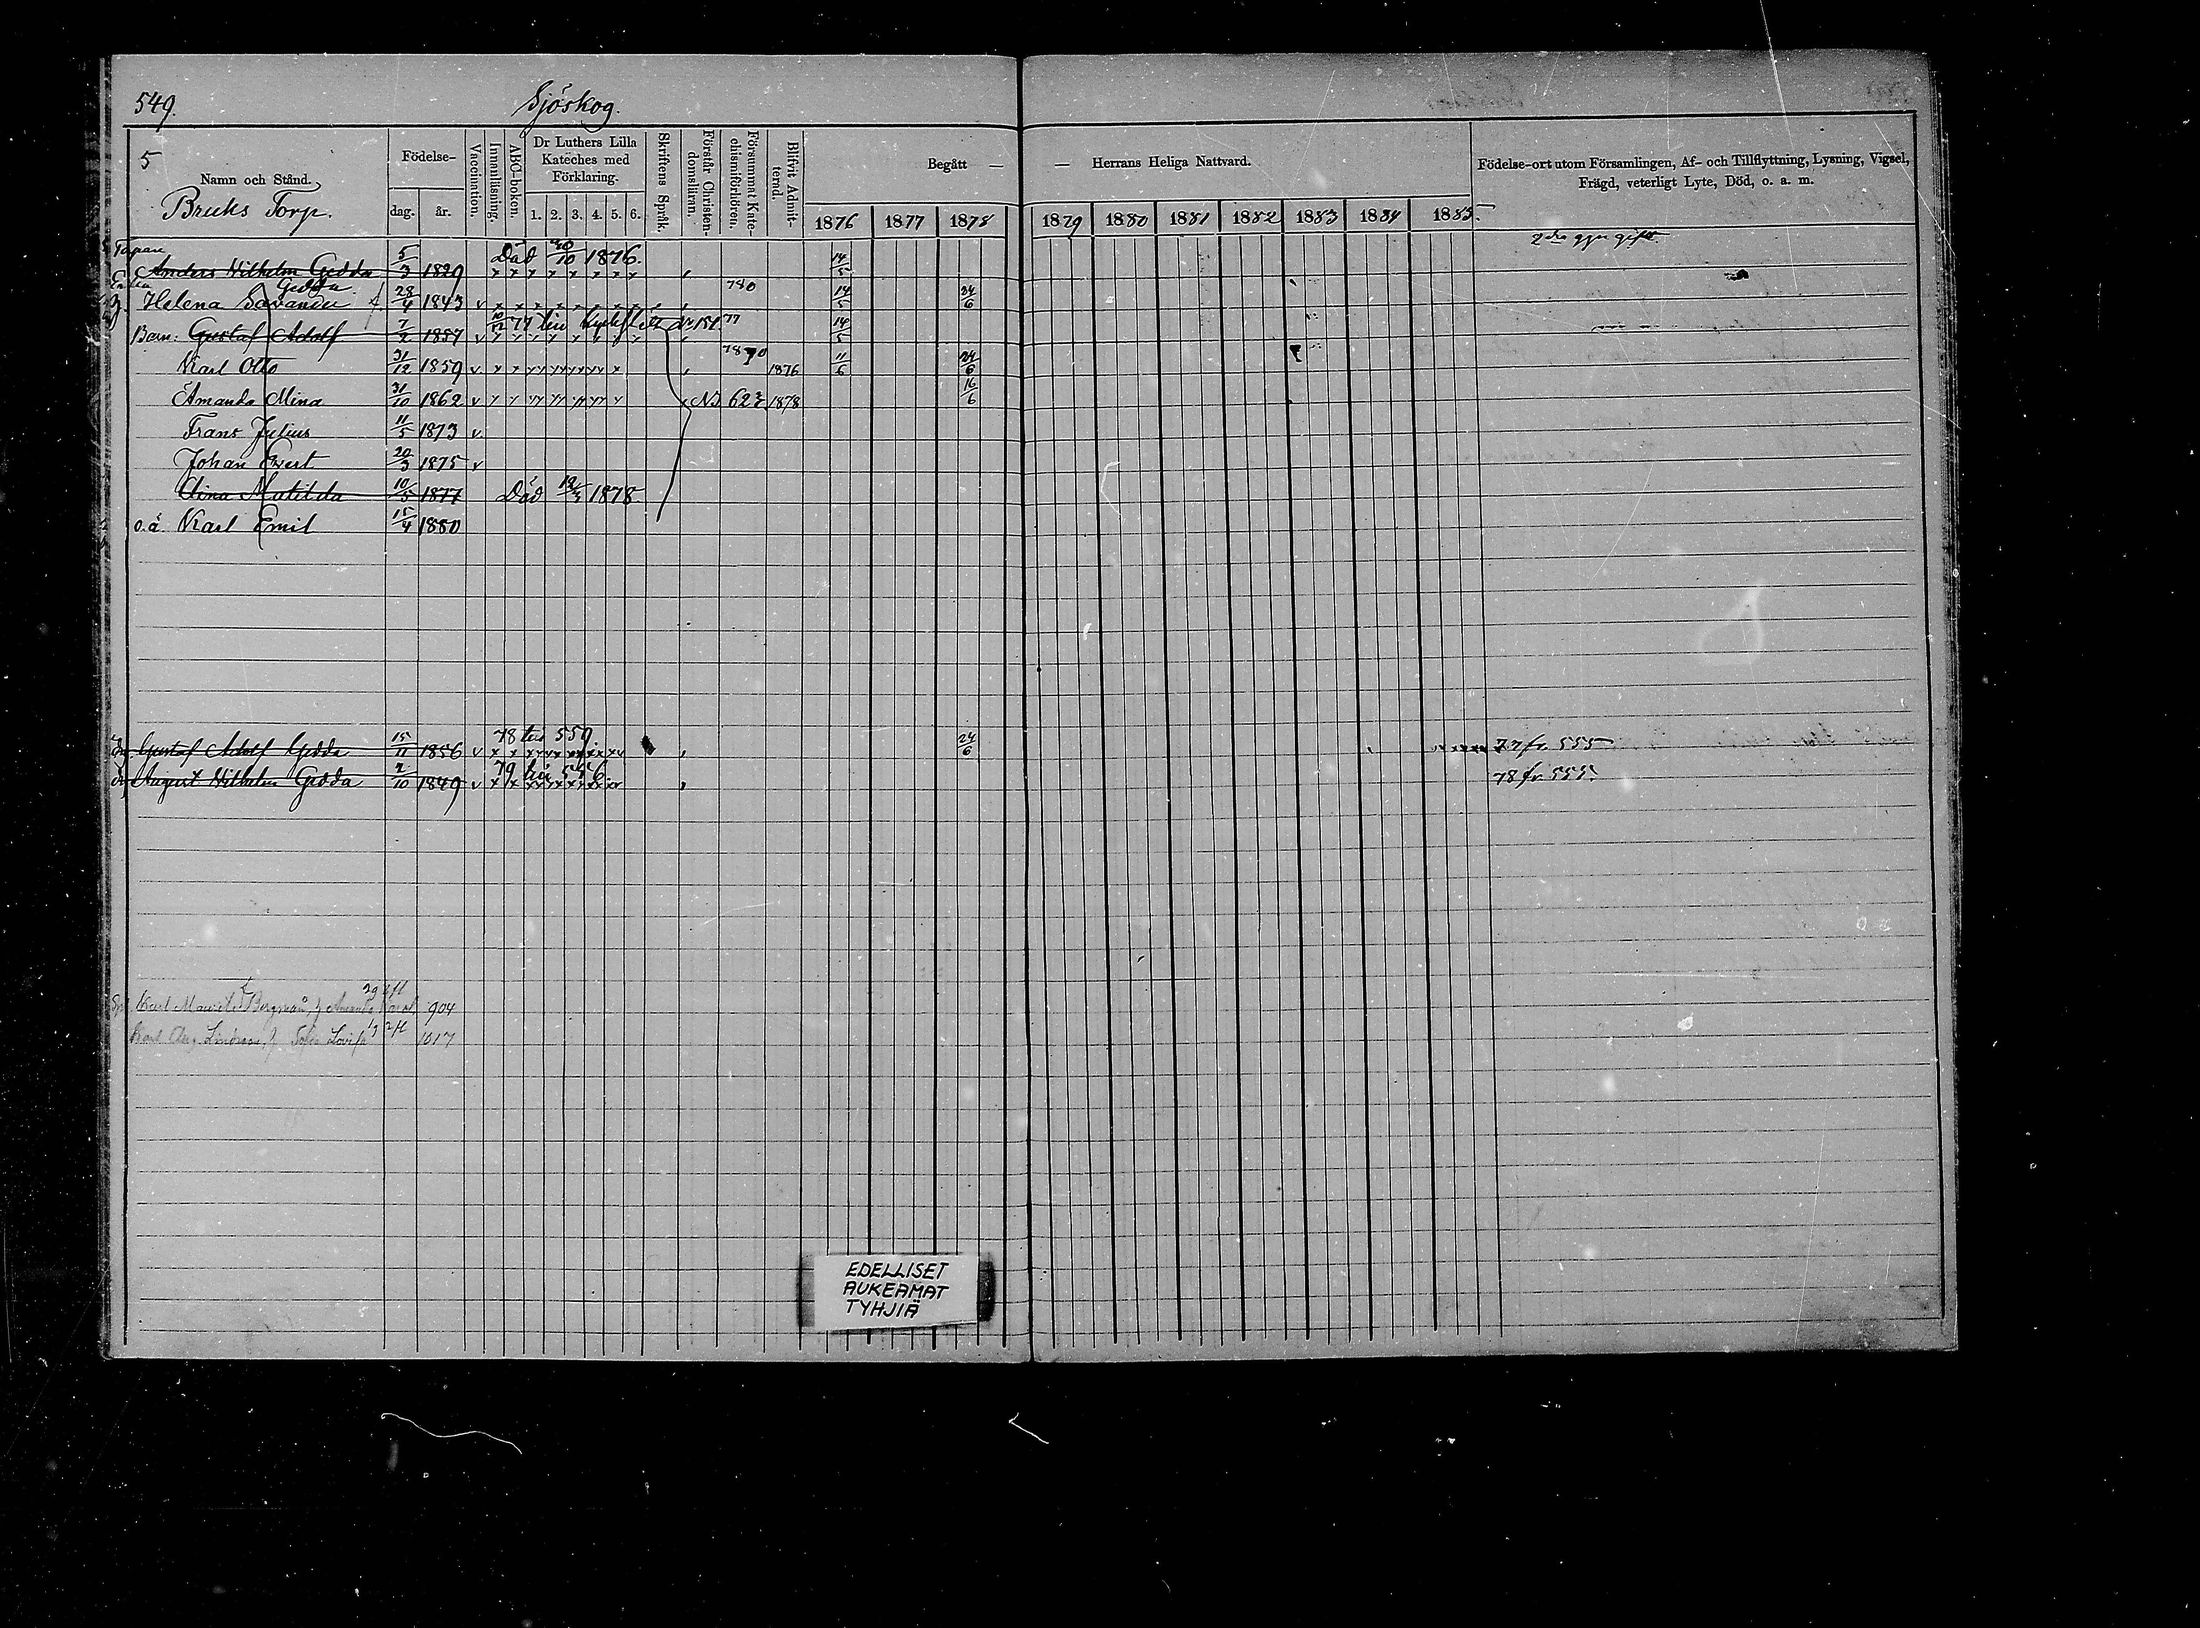 549.
Sjöskog.
5
Namn och Stånd.
Bruks Torp.
Födelse-
dag. år.
Vaccination.
Innanläsning.
ABC-boken.
Dr Luthers Lilla
Kateches med
Förklaring.
1. 2. 3. 4. 5. 6.
Skriftens Språk.
Förstår Christen-
domsläran.
Försummat Kate-
chismiförhören.
Blifvit Admit-
terad.
Begått —
— Herrans Heliga Nattvard.
Födelse-ort utom Församlingen, Af- och Tillflyttning, Lysning, Vigsel,
Frägd, veterligt Lyte, Död, o. a. m.
1876 1877 1878 1879 1880 1881 1882 1883 1884 1885.
Anders Wilhelm Gedda 5/3 1829 Död 10 1876. 14/5
Gedda
Helena 28/4 1843 v 780 14/5 24/6
Barn: Gustaf Adolf 7/2 1857 v 77 14/5
Karl Otto 31/12 1859 v 1876 11/6 24/6
Amanda Mina 31/10 1862 v 1878 16/6
Frans Julius 11/5 1873 v
Johan Evert 20/3 1875 v
Aina Matilda 10/5 1877 Död 1878
o.ä. Karl Emil 15/4 1880
Gustaf Adolf Gedda 15/11 1856 v 78 559 24/6 77 fr. 555
August Wilhelm Gedda 2/10 1849 v 79 556 78 fr. 555
Karl Bergman 904
Karl Aug. Sofia Lovisa 1017
EDELLISET
AUKEAMAT
TYHJIÄ